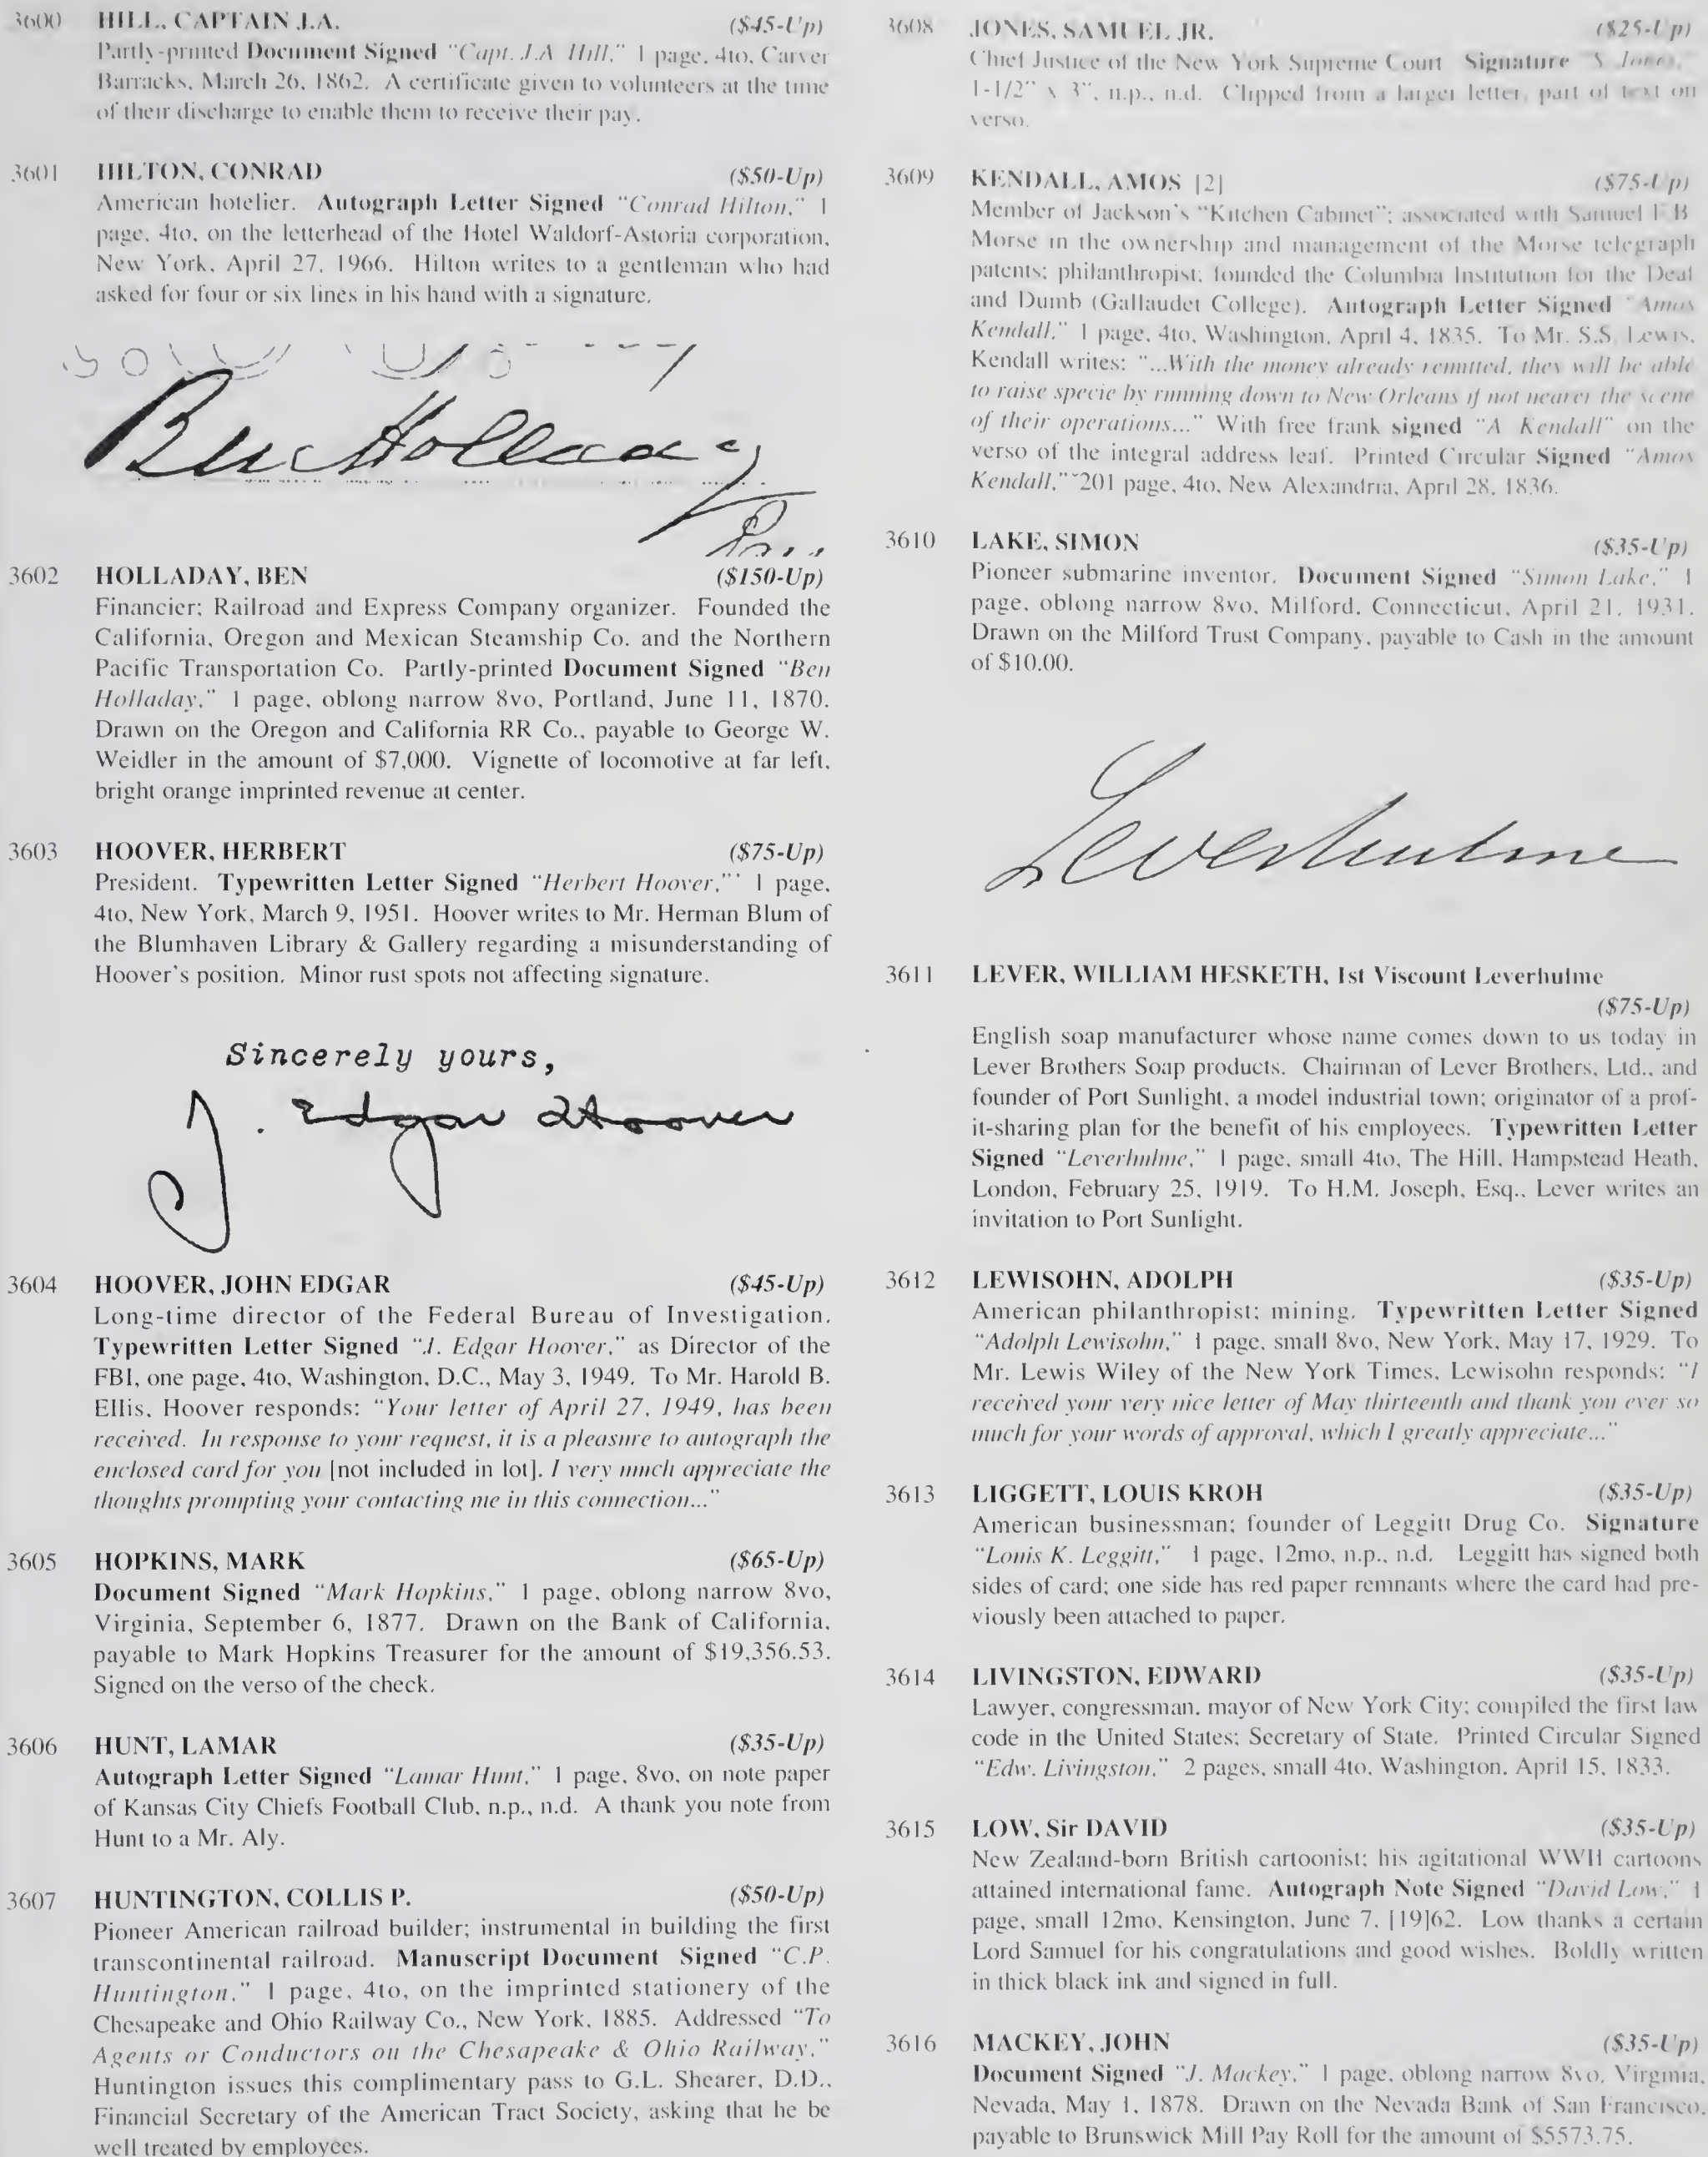 3600 HILL, CAPTAIN J.A. ($45-Up)
Partly-printed Document Signed "Capt. J.A Hill," 1 page, 4to, Carver
Barracks, March 26, 1862. A certificate given to volunteers at the time
of their discharge to enable them to receive their pay.
3601 HILTON, CONRAD ($50-Up)
American hotelier. Autograph Letter Signed "Conrad Hilton," 1
page, 4to, on the letterhead of the Hotel Waldorf-Astoria corporation,
New York, April 27, 1966. Hilton writes to a gentleman who had
asked for four or six lines in his hand with a signature.
Ben Holladay
3602 HOLLADAY, BEN ($150-Up)
Financier; Railroad and Express Company organizer. Founded the
California, Oregon and Mexican Steamship Co. and the Northern
Pacific Transportation Co. Partly-printed Document Signed "Ben
Holladay," 1 page, oblong narrow 8vo, Portland, June 11, 1870.
Drawn on the Oregon and California RR Co., payable to George W.
Weidler in the amount of $7,000. Vignette of locomotive at far left,
bright orange imprinted revenue at center.
3603 HOOVER, HERBERT ($75-Up)
President. Typewritten Letter Signed "Herbert Hoover,"' 1 page,
4to, New York, March 9, 1951. Hoover writes to Mr. Herman Blum of
the Blumhaven Library & Gallery regarding a misunderstanding of
Hoover's position. Minor rust spots not affecting signature.
Sincerely yours,
J. Edgar Hoover
3604 HOOVER, JOHN EDGAR ($45-Up)
Long-time director of the Federal Bureau of Investigation.
Typewritten Letter Signed "J. Edgar Hoover," as Director of the
FBI, one page, 4to, Washington, D.C., May 3, 1949. To Mr. Harold B.
Ellis, Hoover responds: "Your letter of April 27, 1949, has been
received. In response to your request, it is a pleasure to autograph the
enclosed card for you [not included in lot]. I very much appreciate the
thoughts prompting your contacting me in this connection..."
3605 HOPKINS, MARK ($65-Up)
Document Signed "Mark Hopkins," 1 page, oblong narrow 8vo,
Virginia, September 6, 1877. Drawn on the Bank of California,
payable to Mark Hopkins Treasurer for the amount of $19,356.53.
Signed on the verso of the check.
3606 HUNT, LAMAR ($35-Up)
Autograph Letter Signed "Lamar Hunt," 1 page, 8vo, on note paper
of Kansas City Chiefs Football Club, n.p., n.d. A thank you note from
Hunt to a Mr. Aly.
3607 HUNTINGTON, COLLIS P. ($50-Up)
Pioneer American railroad builder; instrumental in building the first
transcontinental railroad. Manuscript Document Signed "C.P.
Huntington," 1 page, 4to, on the imprinted stationery of the
Chesapeake and Ohio Railway Co., New York, 1885. Addressed "To
Agents or Conductors on the Chesapeake & Ohio Railway,"
Huntington issues this complimentary pass to G.L. Shearer, D.D.,
Financial Secretary of the American Tract Society, asking that he be
well treated by employees.
3608 JONES, SAMUEL JR. ($25-Up)
Chief Justice of the New York Supreme Court Signature "S Jones,"
1-1/2" x 3", n.p., n.d. Clipped from a larger letter, part of text on
verso.
3609 KENDALL, AMOS [2] ($75-Up)
Member of Jackson's "Kitchen Cabinet"; associated with Samuel F B
Morse in the ownership and management of the Morse telegraph
patents; philanthropist; founded the Columbia Institution for the Deaf
and Dumb (Gallaudet College). Autograph Letter Signed "Amos
Kendall," 1 page, 4to, Washington, April 4, 1835. To Mr. S.S. Lewis,
Kendall writes: "...With the money already remitted, they will be able
to raise specie by running down to New Orleans if not nearer the scene
of their operations..." With free frank signed "A Kendall" on the
verso of the integral address leaf. Printed Circular Signed "Amos
Kendall,"˜201 page, 4to, New Alexandria, April 28, 1836.
3610 LAKE, SIMON ($35-Up)
Pioneer submarine inventor. Document Signed "Simon Lake," 1
page, oblong narrow 8vo, Milford, Connecticut, April 21, 1931.
Drawn on the Milford Trust Company, payable to Cash in the amount
of $10.00.
Leverhulme
3611 LEVER, WILLIAM HESKETH, 1st Viscount Leverhulme
($75-Up)
English soap manufacturer whose name comes down to us today in
Lever Brothers Soap products. Chairman of Lever Brothers, Ltd., and
founder of Port Sunlight, a model industrial town; originator of a prof-
it-sharing plan for the benefit of his employees. Typewritten Letter
Signed "Leverhulme," 1 page, small 4to, The Hill, Hampstead Heath,
London, February 25, 1919. To H.M. Joseph, Esq., Lever writes an
invitation to Port Sunlight.
3612 LEWISOHN, ADOLPH ($35-Up)
American philanthropist; mining. Typewritten Letter Signed
"Adolph Lewisohn," 1 page, small 8vo, New York, May 17, 1929. To
Mr. Lewis Wiley of the New York Times, Lewisohn responds: "I
received your very nice letter of May thirteenth and thank you ever so
much for your words of approval, which I greatly appreciate..."
3613 LIGGETT, LOUIS KROH ($35-Up)
American businessman; founder of Leggitt Drug Co. Signature
"Louis K. Leggitt," 1 page, 12mo, n.p., n.d. Leggitt has signed both
sides of card; one side has red paper remnants where the card had pre-
viously been attached to paper.
3614 LIVINGSTON, EDWARD ($35-Up)
Lawyer, congressman, mayor of New York City; compiled the first law
code in the United States; Secretary of State. Printed Circular Signed
"Edw. Livingston," 2 pages, small 4to, Washington, April 15, 1833.
3615 LOW, Sir DAVID ($35-Up)
New Zealand-born British cartoonist; his agitational WWII cartoons
attained international fame. Autograph Note Signed "David Low," 1
page, small 12mo, Kensington, June 7, [19]62. Low thanks a certain
Lord Samuel for his congratulations and good wishes. Boldly written
in thick black ink and signed in full.
3616 MACKEY, JOHN ($35-Up)
Document Signed "J. Mackey," 1 page, oblong narrow 8vo, Virginia,
Nevada, May 1, 1878. Drawn on the Nevada Bank of San Francisco,
payable to Brunswick Mill Pay Roll for the amount of $5573.75.